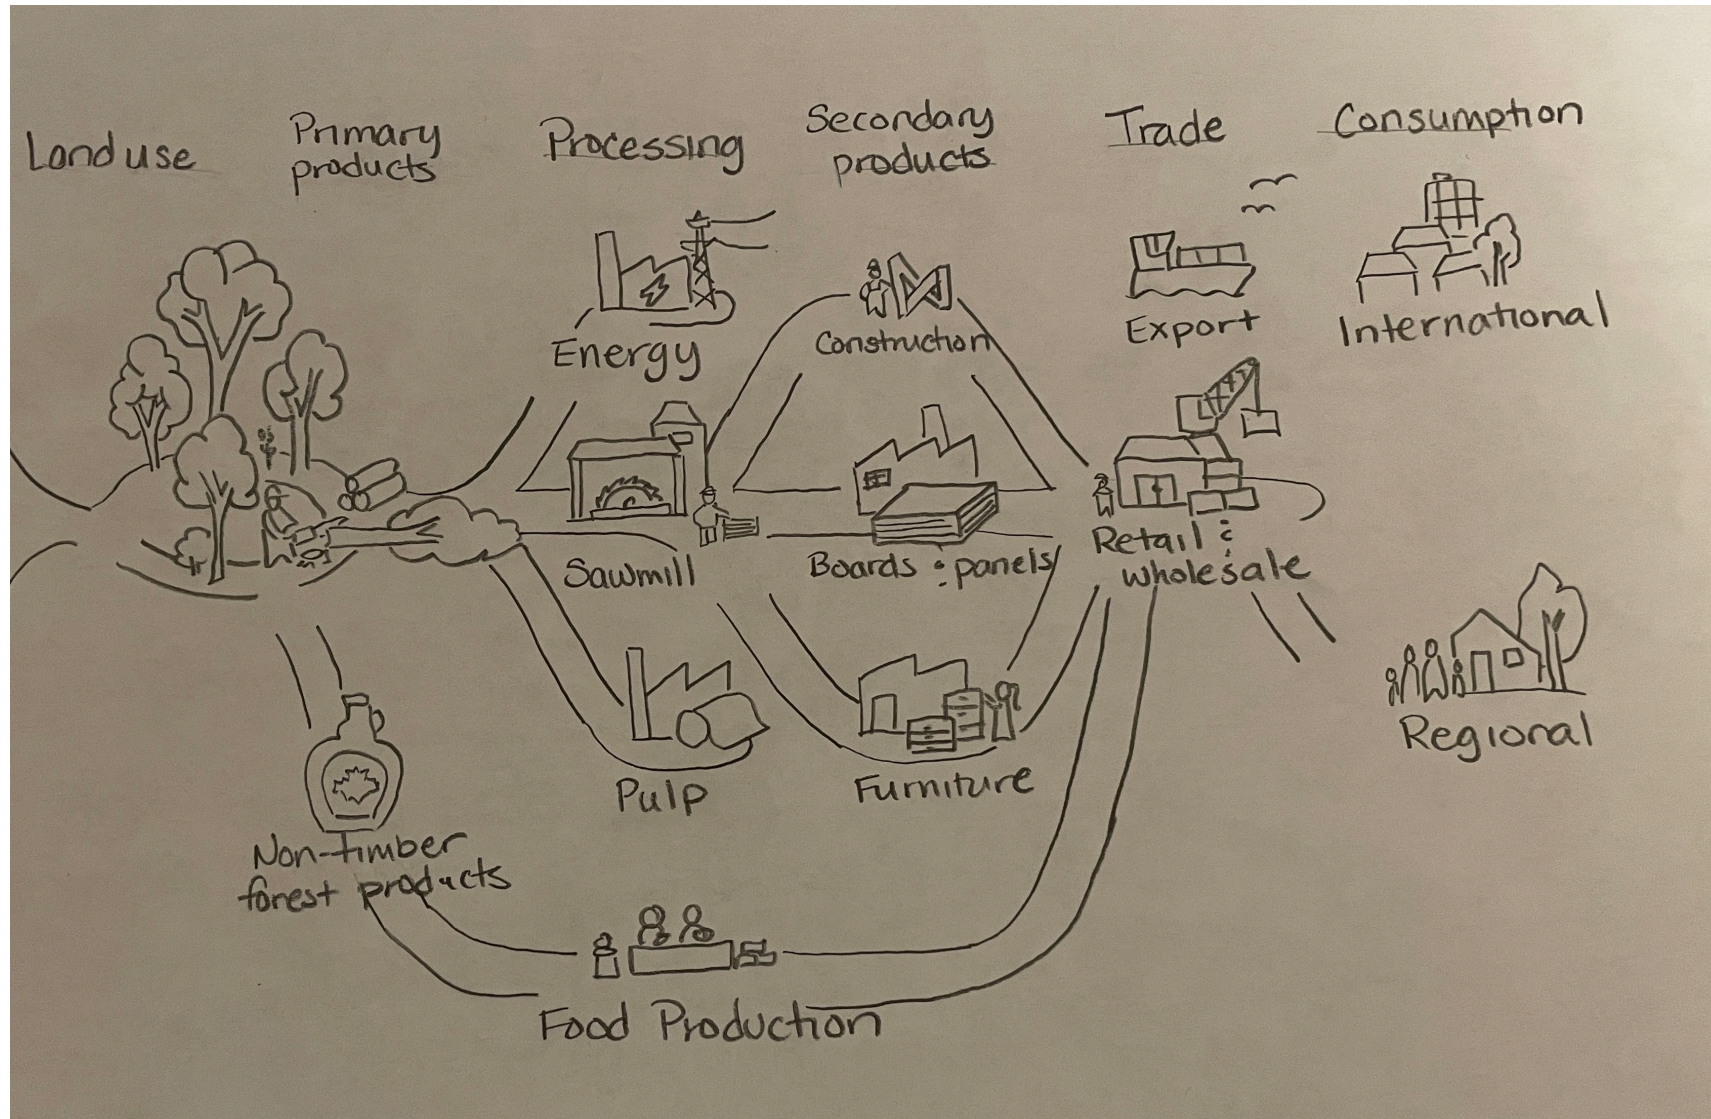 Land use
Primary
products
Processing
Secondary
products
Trade
Consumption
Energy
Construction
Export
International
Sawmill
Boards & panels
Retail &
wholesale
Pulp
Furniture
Regional
Non-timber
forest products
Food Production